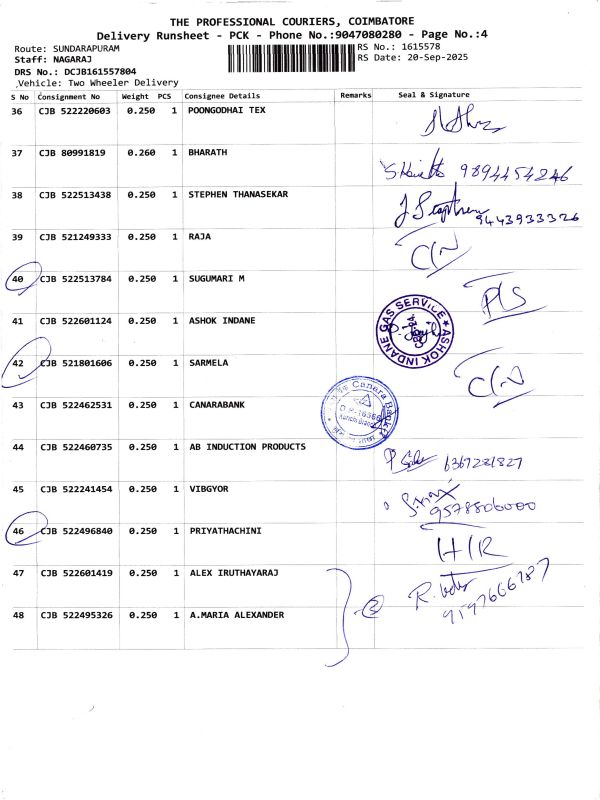 THE PROFESSIONAL COURIERS, COIMBATORE
Delivery Runsheet - PCK - Phone No.:9047080280 - Page No.:4
Route: SUNDARAPURAM RS No.: 1615578
Staff: NAGARAJ RS Date: 20-Sep-2025
DRS No.: DCJB161557804
Vehicle: Two Wheeler Delivery
S No Consignment No Weight PCS Consignee Details Remarks Seal & Signature
36 CJB 522220603 0.250 1 POONGODHAI TEX
37 CJB 80991819 0.260 1 BHARATH 9894454246
38 CJB 522513438 0.250 1 STEPHEN THANASEKAR 9443933326
39 CJB 521249333 0.250 1 RAJA
40 CJB 522513784 0.250 1 SUGUMARI M
41 CJB 522601124 0.250 1 ASHOK INDANE ASHOK INDANE GAS SERVICE
42 CJB 521801606 0.250 1 SARMELA
43 CJB 522462531 0.250 1 CANARABANK Canara Bank
44 CJB 522460735 0.250 1 AB INDUCTION PRODUCTS 6367281827
45 CJB 522241454 0.250 1 VIBGYOR 9578806000
46 CJB 522496840 0.250 1 PRIYATHACHINI
47 CJB 522601419 0.250 1 ALEX IRUTHAYARAJ 9597666787
48 CJB 522495326 0.250 1 A.MARIA ALEXANDER